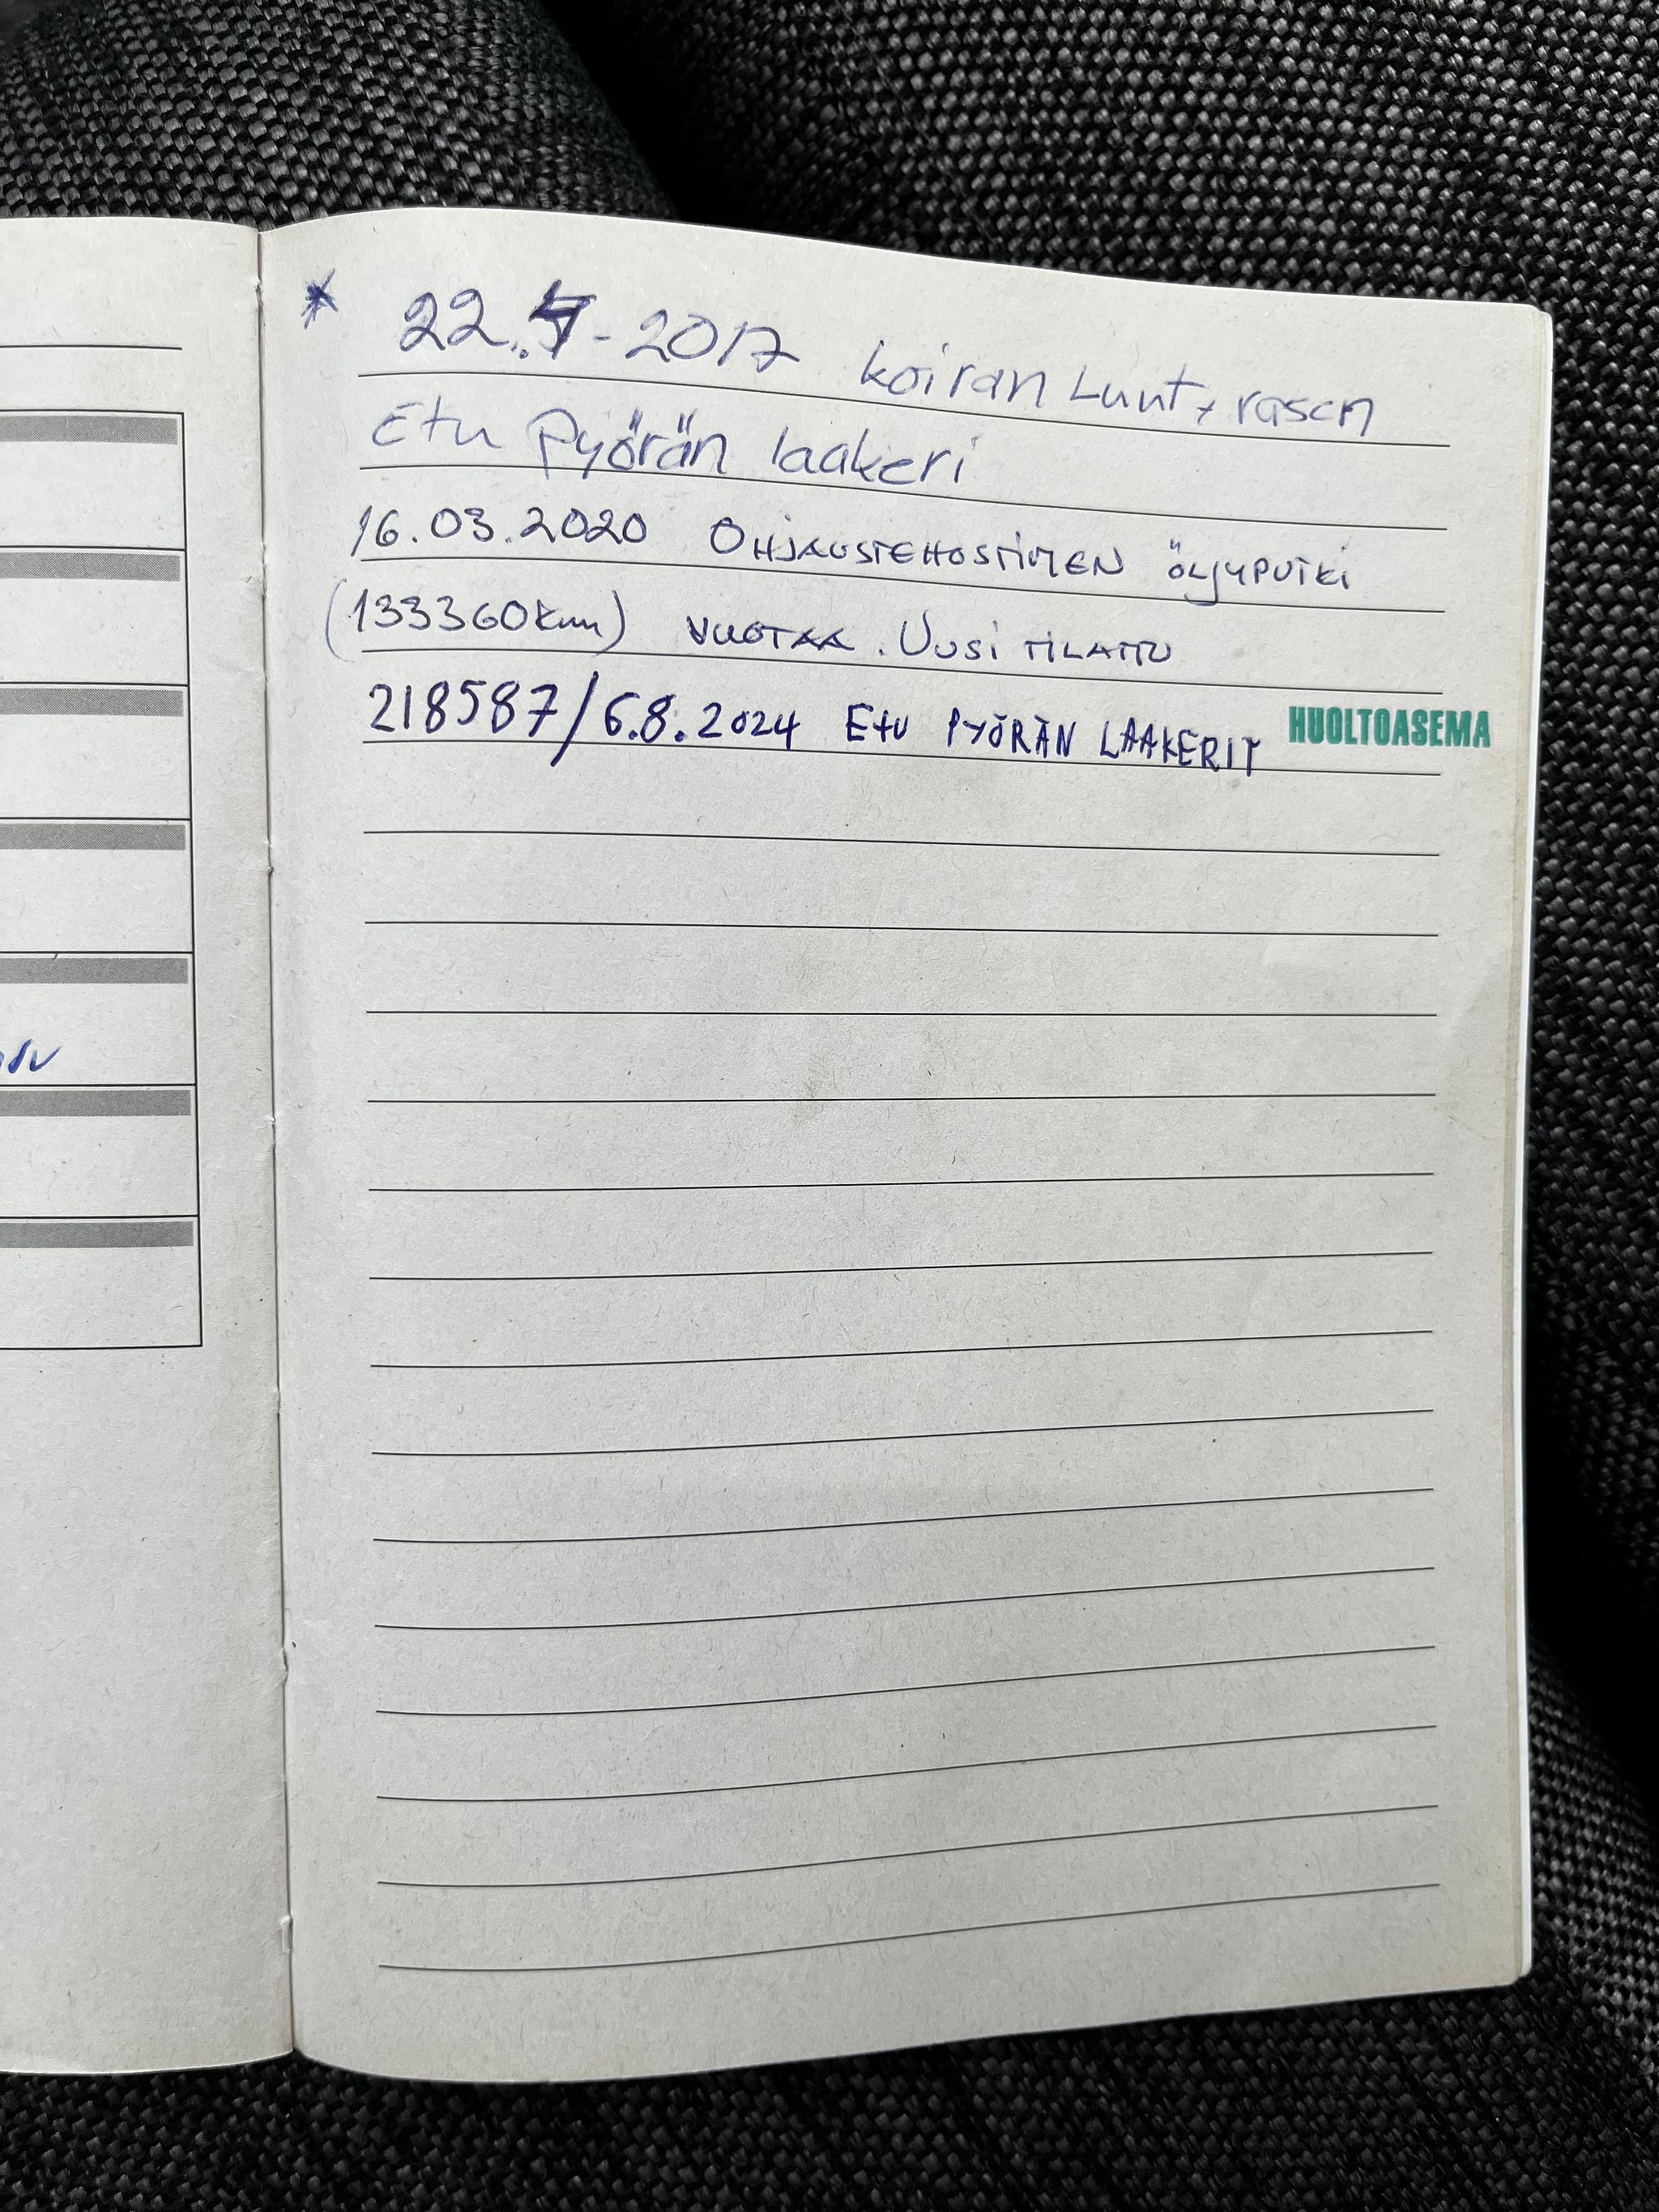 * 22. - 2017 koiran Luut, vasen
Etu pyörän laakeri
16.03.2020 OHJAUSTEHOSTIMEN ÖLJYPUTKI
(133360km) VUOTAA. UUSI TILATTU
218587/6.8.2024 Etu PYÖRÄN LAAKERIT HUOLTOASEMA